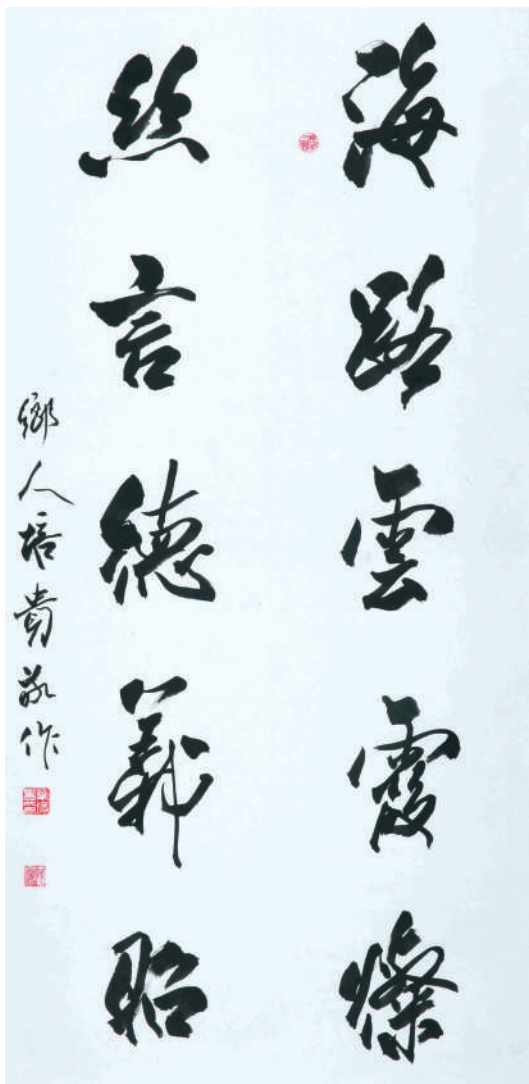 海路雲霞燦
絲言德義昭
鄉人培貴敬作